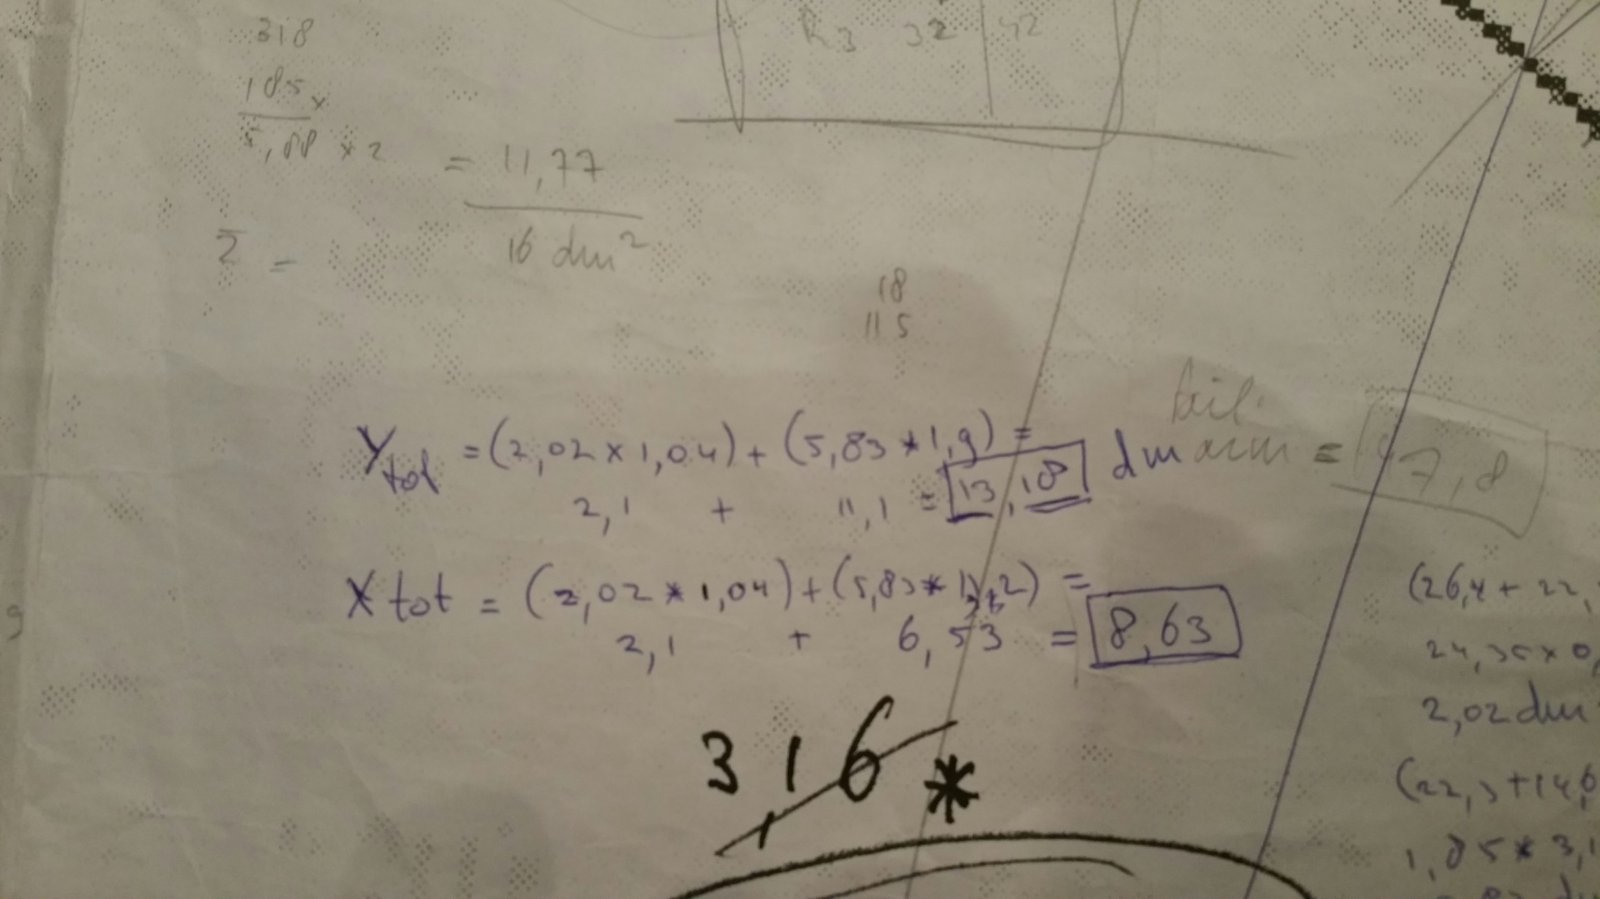 318
185 x
5,88 * 2 = 11,77
16 dm²
R3 32 42
18
115
Ytot = (2,02 x 1,04) + (5,83 * 1,9) =
2,1 + 11,1 = 13,18 dm
7,8
X tot = (2,02 * 1,04) + (5,83 *
2,1 + 6,53 = 8,63
316 *
(26,4 + 22,
24,35 x 0,
2,02 dm
(22,3 + 14,6
1,85 * 3,1